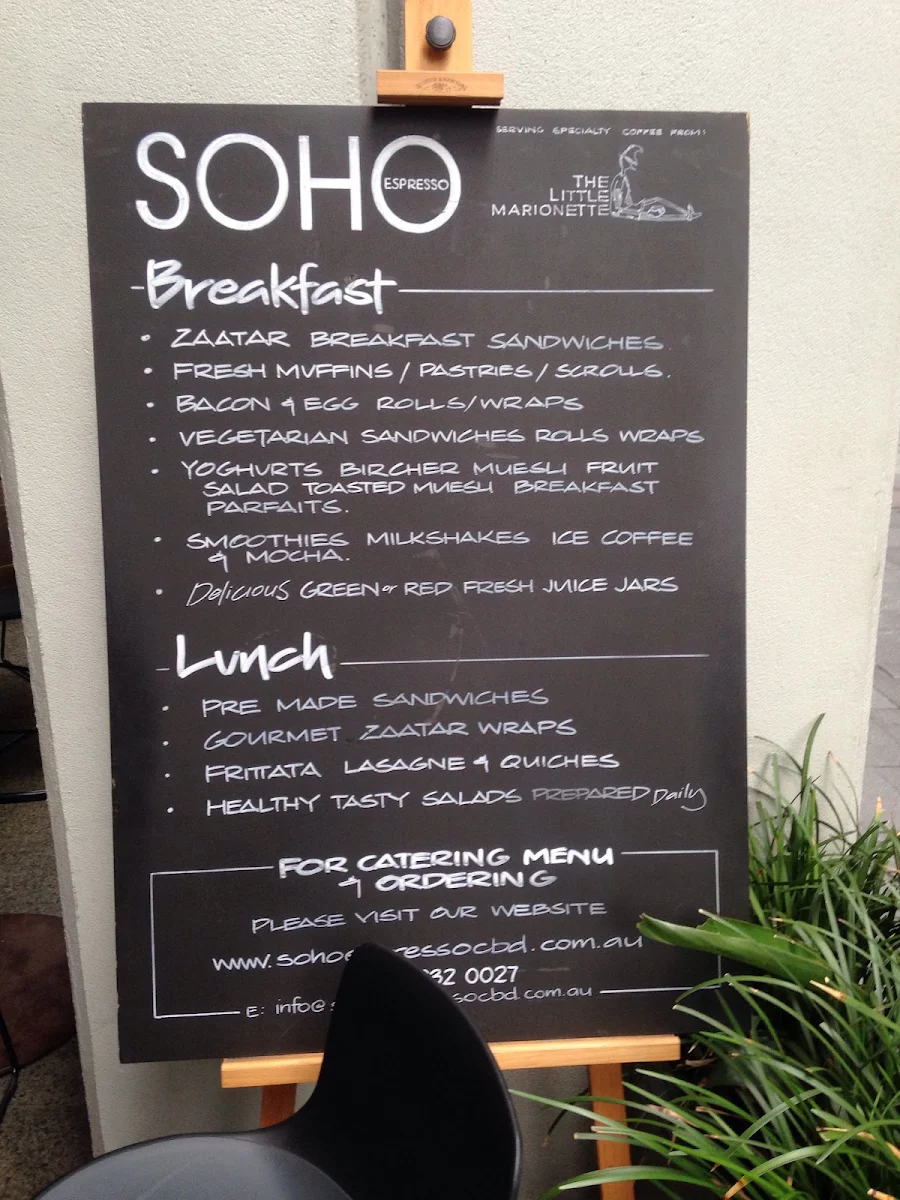 SERVING SPECIALTY COFFEE FROM:
SOHO
ESPRESSO
THE
LITTLE
MARIONETTE
Breakfast
• ZAATAR BREAKFAST SANDWICHES.
• FRESH MUFFINS / PASTRIES / SCROLLS.
• BACON & EGG ROLLS/WRAPS
• VEGETARIAN SANDWICHES ROLLS WRAPS
• YOGHURTS BIRCHER MUESLI FRUIT
SALAD TOASTED MUESLI BREAKFAST
PARFAITS.
• SMOOTHIES MILKSHAKES ICE COFFEE
& MOCHA.
• Delicious GREEN or RED FRESH JUICE JARS
Lunch
• PRE MADE SANDWICHES
• GOURMET ZAATAR WRAPS
• FRITTATA LASAGNE & QUICHES
• HEALTHY TASTY SALADS PREPARED Daily
FOR CATERING MENU
& ORDERING
PLEASE VISIT OUR WEBSITE
www.sohoe ressocbd.com.au
32 0027
E: info@ socbd.com.au